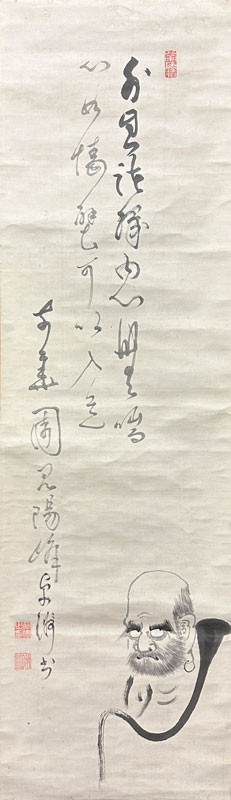 外息諸縁内心無喘
心如墻壁可以入道
華園 陽峰 書